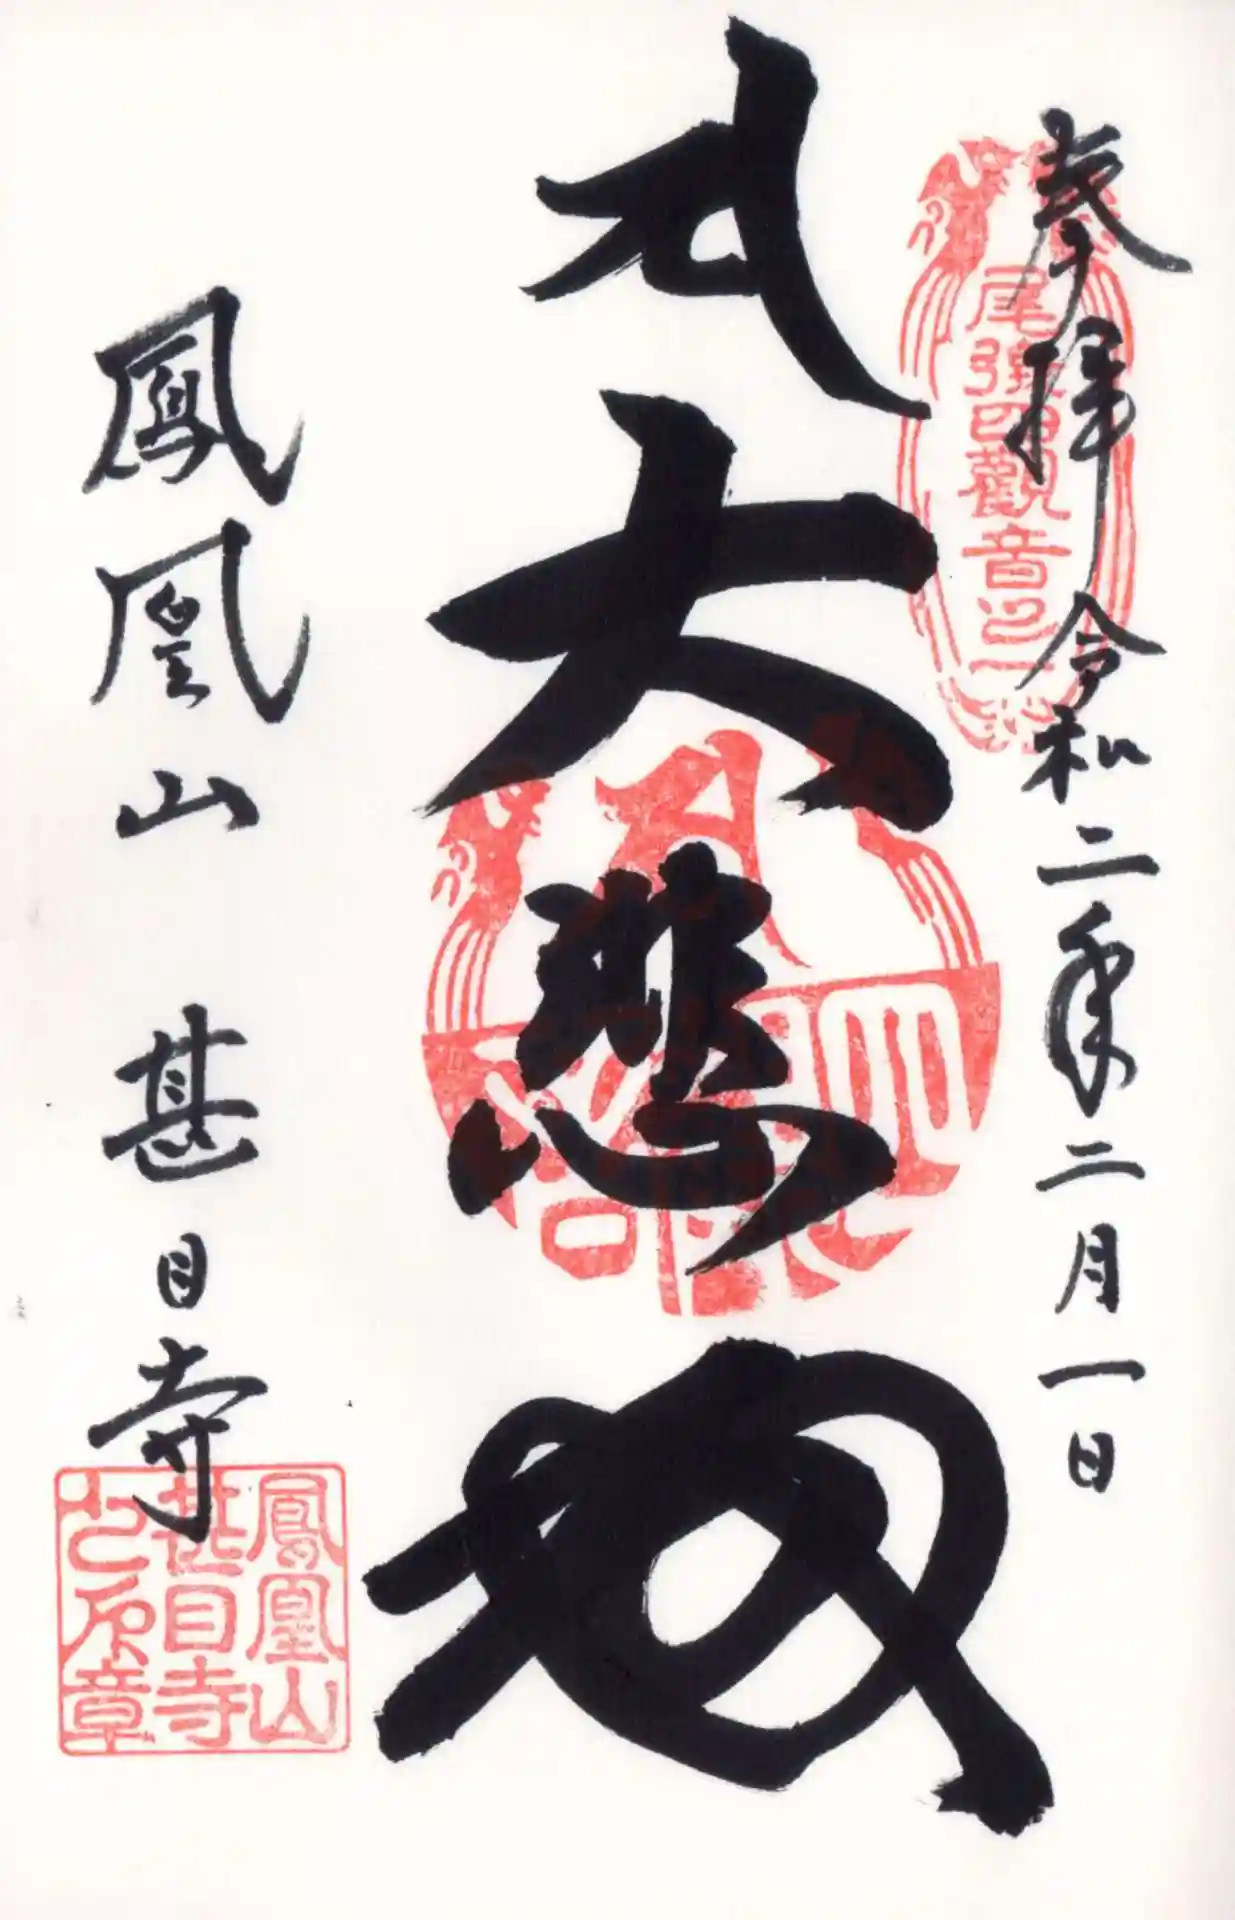 奉拝 令和二年二月一日
尾張四観音之一
大悲殿
鳳凰山 甚目寺
鳳凰山
甚目寺
之印章